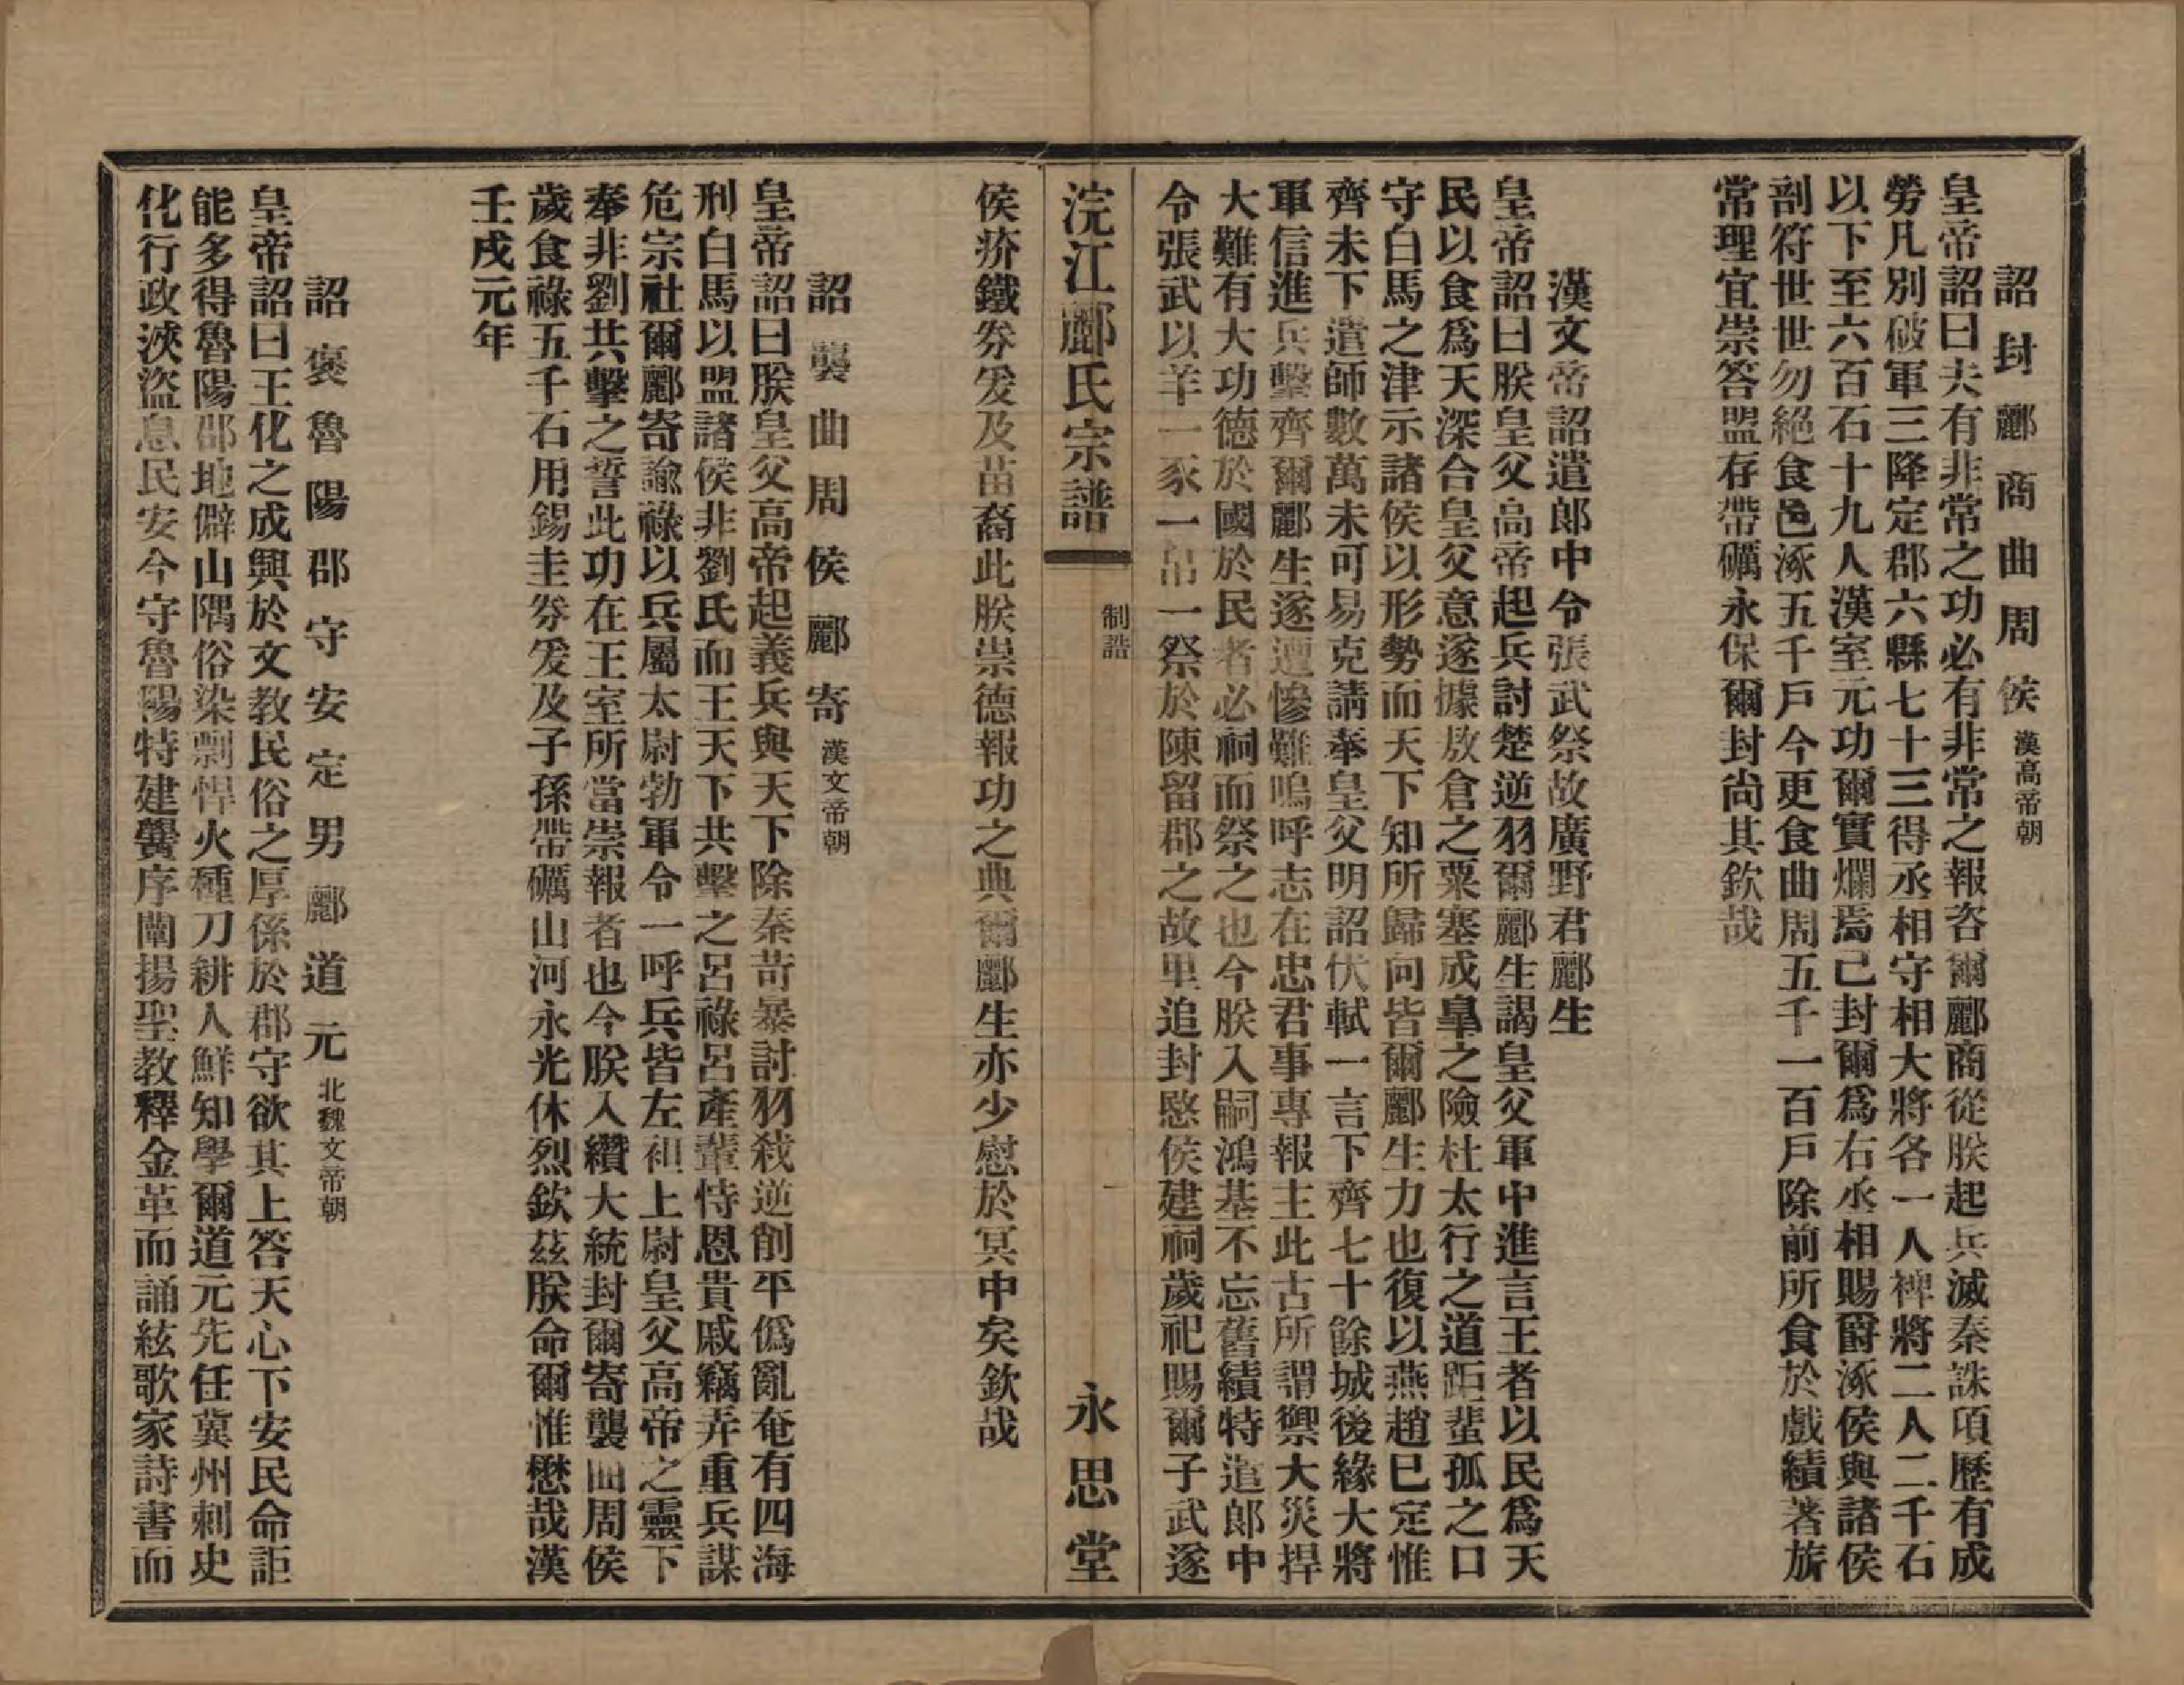 詔封酈商曲周侯漢高帝朝
皇帝詔曰夫有非常之功必有非常之報咨爾酈商從朕起兵滅秦誅項歷有成
勞凡別破軍三降定郡六縣七十三得丞相守相大將各一人裨將二人二千石
以下至六百石十九人漢室元功爾實爛焉已封爾爲右丞相賜爵涿侯與諸侯
剖符世世勿絕食邑涿五千戶今更食曲周五千一百戶除前所食於戲績著旂
常理宜崇答盟存帶礪永保爾封尚其欽哉
漢文帝詔遣郎中令張武祭故廣野君酈生
皇帝詔曰朕皇父高帝起兵討楚逆羽爾酈生謁皇父軍中進言王者以民爲天
民以食爲天深合皇父意遂據敖倉之粟塞成皐之險杜太行之道距蜚孤之口
守白馬之津示諸侯以形勢而天下知所歸向皆爾酈生力也復以燕趙已定惟
齊未下遣師數萬未可易克請奉皇父明詔伏軾一言下齊七十餘城後緣大將
軍信進兵擊齊爾酈生遂遭慘難嗚呼志在忠君事專報主此古所謂禦大災捍
大難有大功德於國於民者必祠而祭之也今朕入嗣鴻基不忘舊績特遣郎中
令張武以羊一豕一帛一祭於陳留郡之故里追封愍侯建祠歲祀賜爾子武遂
浣江酈氏宗譜
制誥
一
永思堂
侯疥鐵券爰及苗裔此朕崇德報功之典爾酈生亦少慰於冥中矣欽哉
詔襲曲周侯酈寄漢文帝朝
皇帝詔曰朕皇父高帝起義兵與天下除秦苛暴討羽殺逆削平僞亂奄有四海
刑白馬以盟諸侯非劉氏而王天下共擊之呂祿呂產輩恃恩貴戚竊弄重兵謀
危宗社爾酈寄諭祿以兵屬太尉勃軍令一呼兵皆左袒上尉皇父高帝之靈下
奉非劉共擊之誓此功在王室所當崇報者也今朕入纘大統封爾寄襲曲周侯
歲食祿五千石用錫圭券爰及子孫帶礪山河永光休烈欽茲朕命爾惟懋哉漢
壬戌元年
詔褒魯陽郡守安定男酈道元北魏文帝朝
皇帝詔曰王化之成興於文教民俗之厚係於郡守欲其上答天心下安民命詎
能多得魯陽郡地僻山隅俗染剽悍火種刀耕人鮮知學爾道元先任冀州刺史
化行政浹盜息民安今守魯陽特建黌序闡揚聖教釋金革而誦絃歌家詩書而